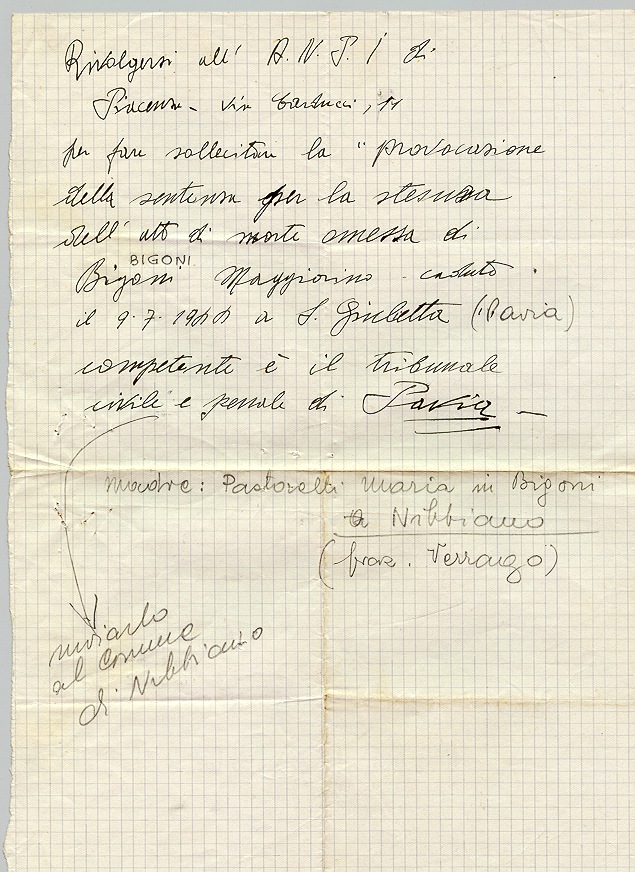 Rivolgersi all' A.N.P.I di
Piacenza - Via Carducci, 11
per fare sollecitare la "provocasione
della sentenza per la stesura
dell' atto di morte emessa di
BIGONI
Bigoni Maggiorino - caduto
il 9.7.1944 a S. Giuletta (Pavia)
competente è il tribunale
civile e penale di Pavia -
Madre: Pastorelli Maria in Bigoni
a Nibbiano
(fraz.
inviarlo
al Comune
di Nibbiano